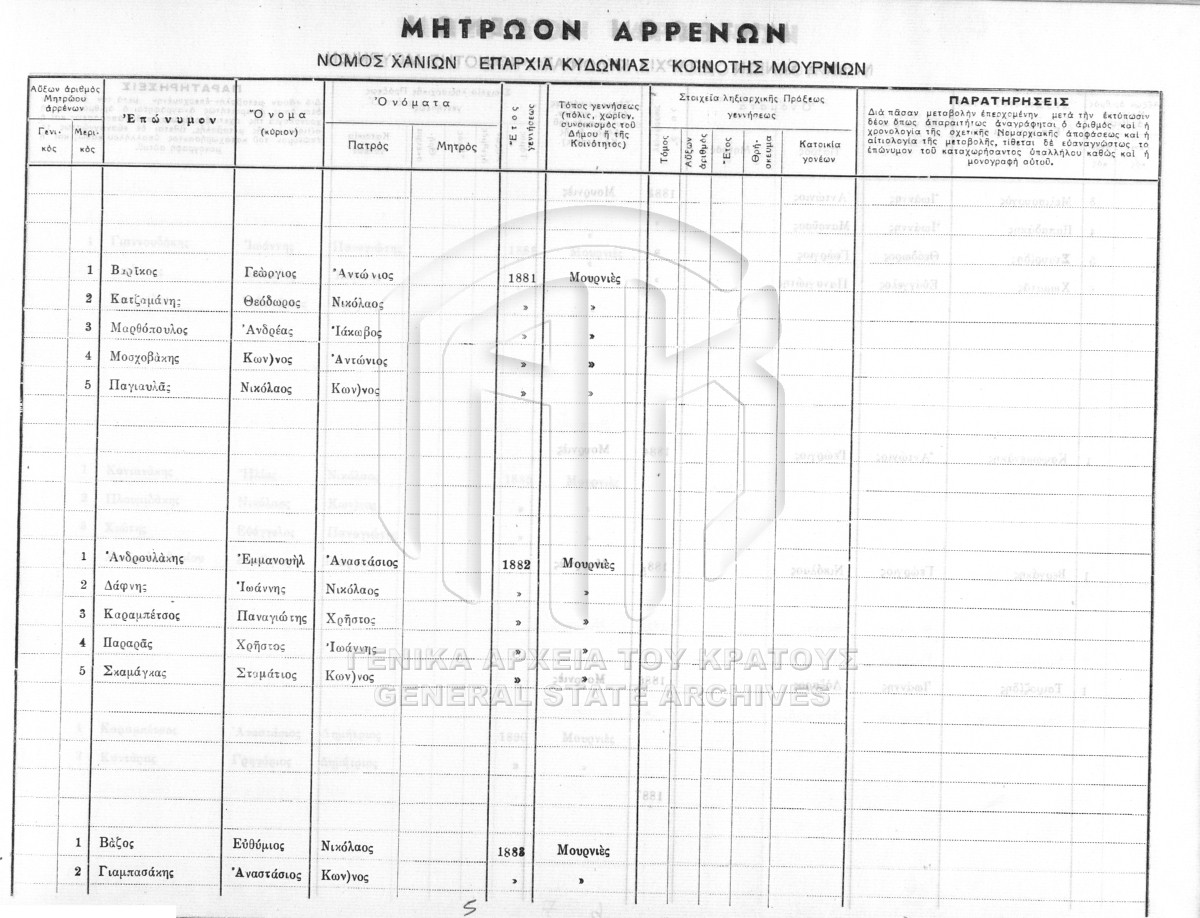 ΜΗΤΡΩΟΝ ΑΡΡΕΝΩΝ
ΝΟΜΟΣ ΧΑΝΙΩΝ ΕΠΑΡΧΙΑ ΚΥΔΩΝΙΑΣ ΚΟΙΝΟΤΗΣ ΜΟΥΡΝΙΩΝ
Αὔξων ἀριθμὸς Μητρώου ἀρρένων
Γενικός
Μερικός
Ἐπώνυμον
Ὄνομα (κύριον)
Ὀνόματα
Πατρός
Μητρός
Ἔτος γεννήσεως
Τόπος γεννήσεως (πόλις, χωρίον, συνοικισμὸς τοῦ Δήμου ἢ τῆς Κοινότητος)
Στοιχεῖα ληξιαρχικῆς Πράξεως γεννήσεως
Τόμος
Αὔξων ἀριθμός
Ἔτος
Θρήσκευμα
Κατοικία γονέων
ΠΑΡΑΤΗΡΗΣΕΙΣ
Διὰ πᾶσαν μεταβολὴν ἐπερχομένην μετὰ τὴν ἐκτύπωσιν
δέον ὅπως ἀπαραιτήτως ἀναγράφηται ὁ ἀριθμὸς καὶ ἡ
χρονολογία τῆς σχετικῆς Νομαρχιακῆς ἀποφάσεως καὶ ἡ
αἰτιολογία τῆς μεταβολῆς, τίθεται δὲ εὐαναγνώστως τὸ
ἐπώνυμον τοῦ καταχωρήσαντος ὑπαλλήλου καθὼς καὶ ἡ
μονογραφὴ αὐτοῦ.
1 Βερῖκος Γεώργιος Ἀντώνιος 1881 Μουρνιὲς
2 Κατζαμάνης Θεόδωρος Νικόλαος » »
3 Μαρθόπουλος Ἀνδρέας Ἰάκωβος » »
4 Μοσχοβάκης Κων)νος Ἀντώνιος » »
5 Παγιαυλᾶς Νικόλαος Κων)νος » »
1 Ἀνδρουλάκης Ἐμμανουὴλ Ἀναστάσιος 1882 Μουρνιὲς
2 Δάφνης Ἰωάννης Νικόλαος » »
3 Καραμπέτσος Παναγιώτης Χρῆστος » »
4 Παραρᾶς Χρῆστος Ἰωάννης » »
5 Σκαμάγκας Σταμάτιος Κων)νος » »
ΓΕΝΙΚΑ ΑΡΧΕΙΑ ΤΟΥ ΚΡΑΤΟΥΣ
GENERAL STATE ARCHIVES
1 Βάζος Εὐθύμιος Νικόλαος 1883 Μουρνιὲς
2 Γιαμπασάκης Ἀναστάσιος Κων)νος » »
5